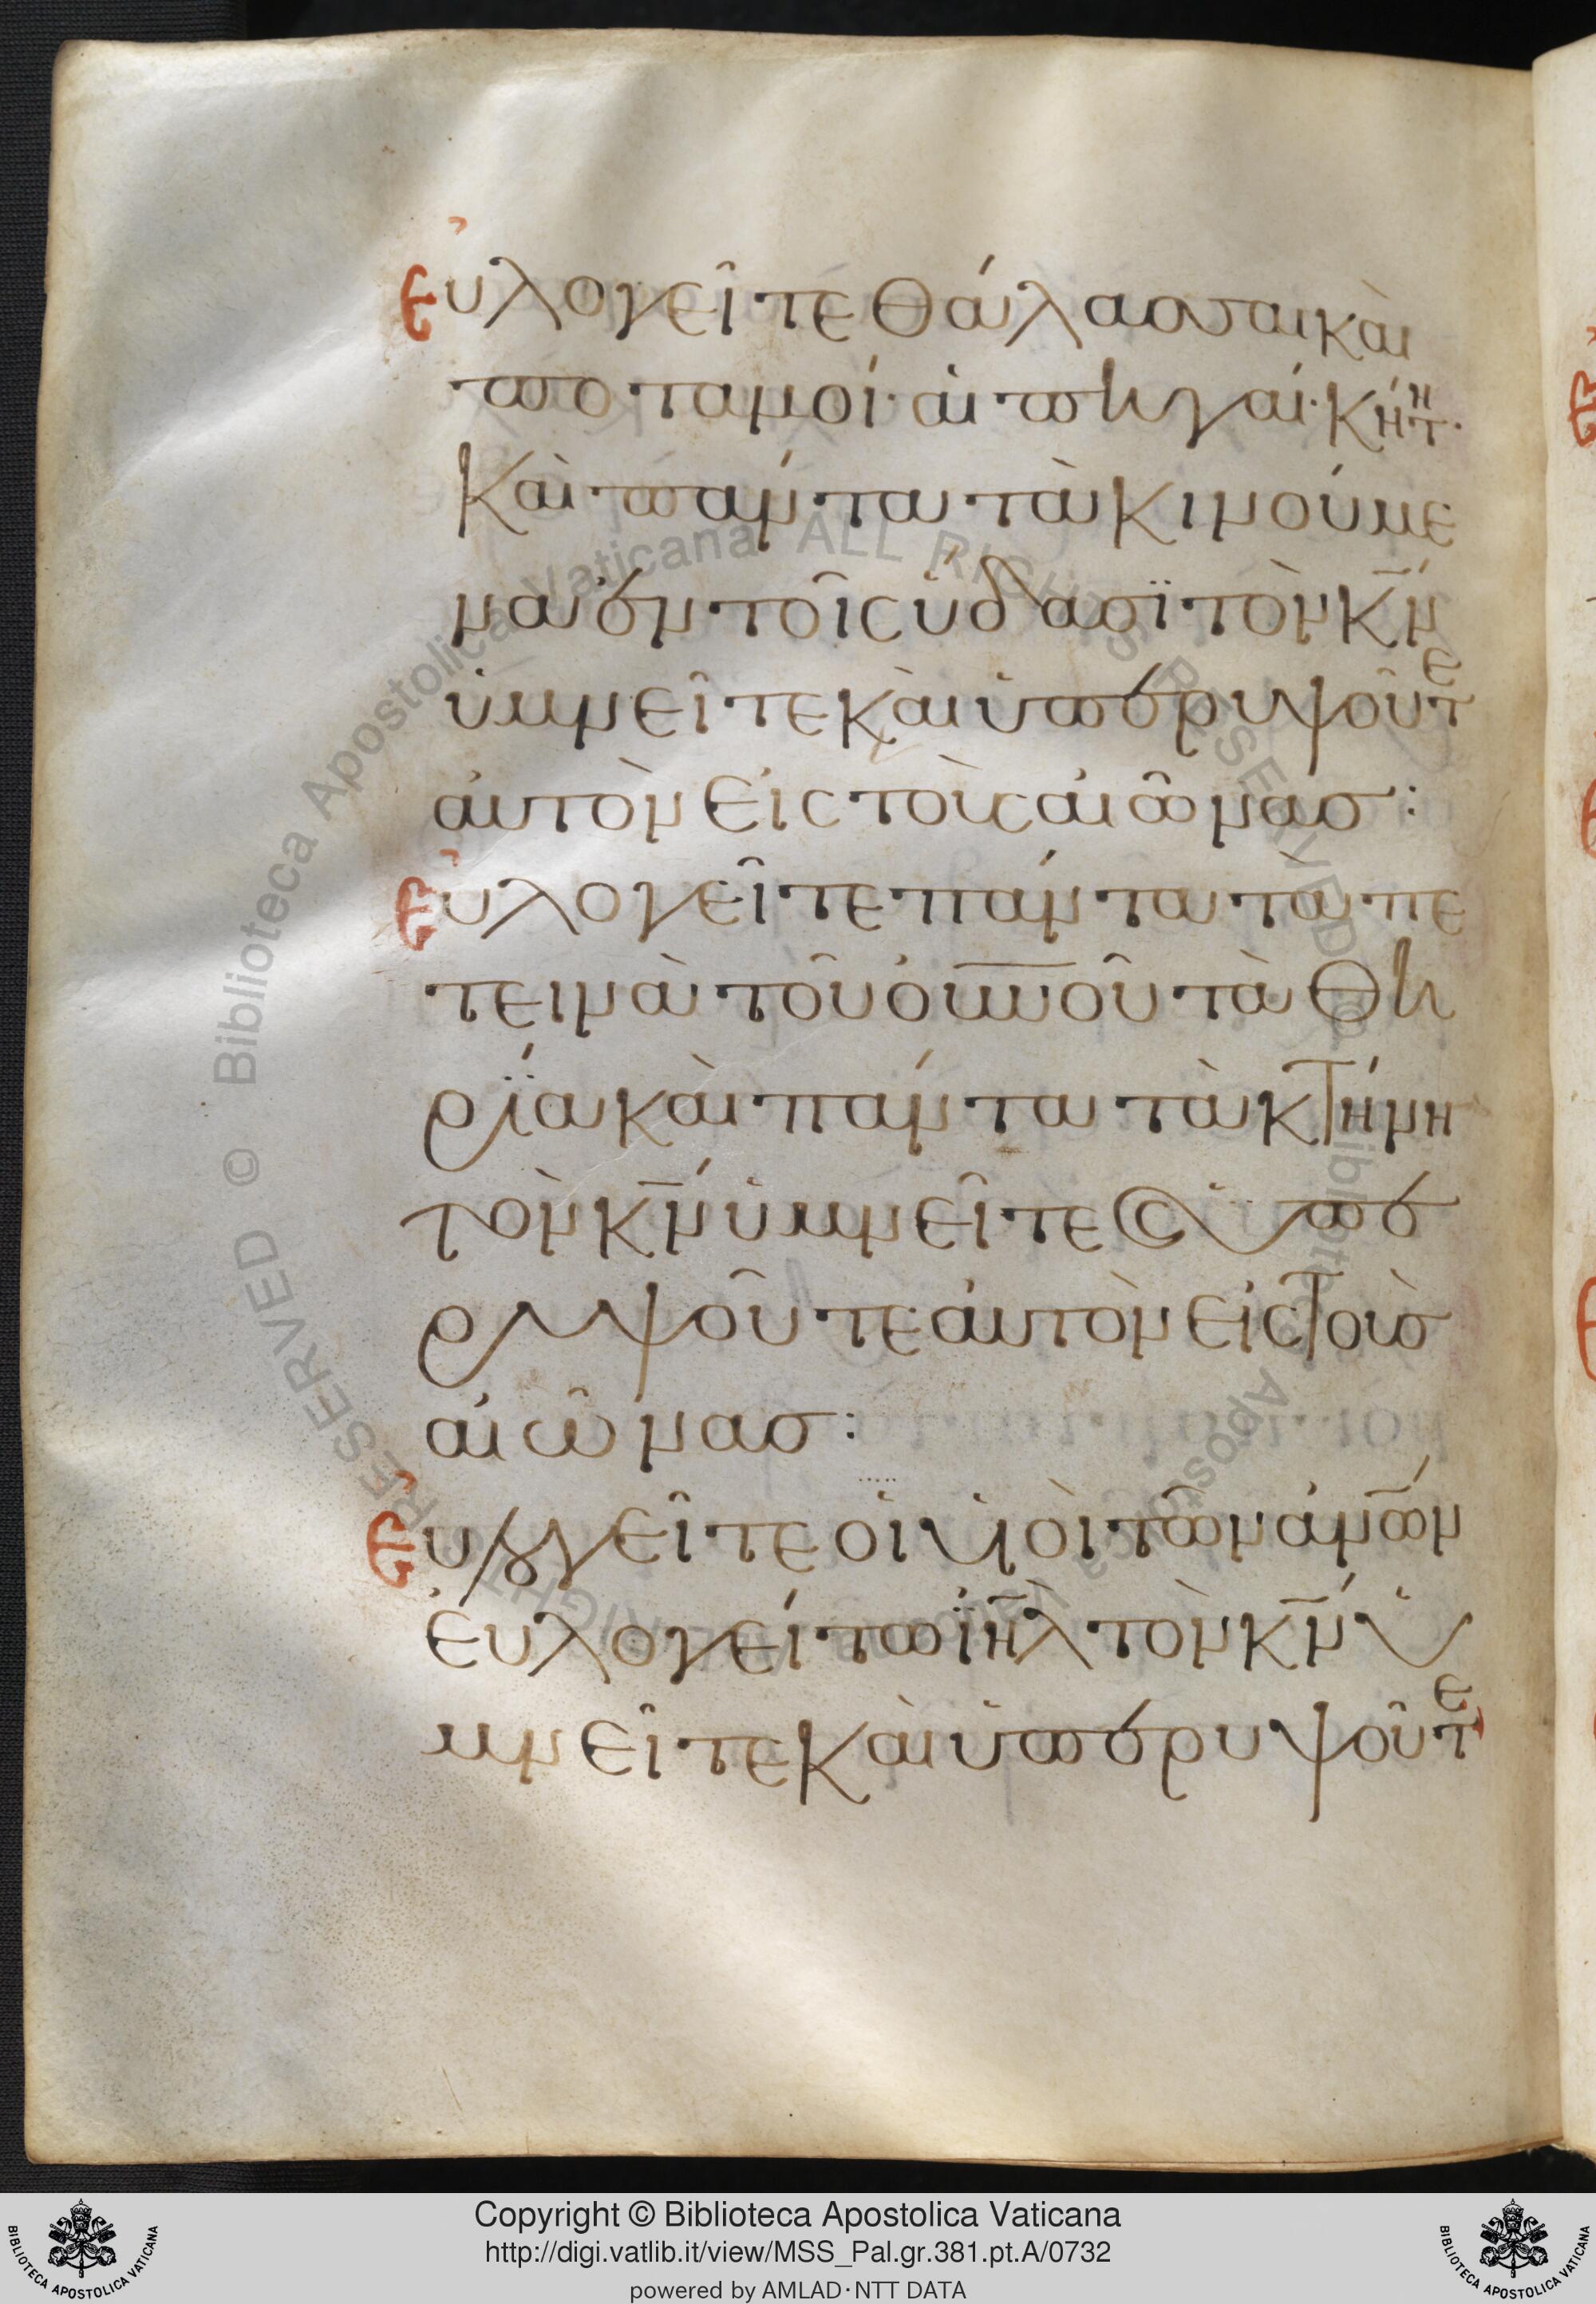 Εὐλογεῖτε θάλασσαι καὶ
ποταμοί· αἱ πηγαί· κήτη·
καὶ πάντα τὰ κινούμε
να ἐν τοῖς ὕδασϊ τὸν κ̅ν̅
ὑμνεῖτε καὶ ὑπερυψοῦτε
αὐτὸν εἰς τοὺς αἰῶνας:
Εὐλογεῖτε πάντα τὰ πε
τεινὰ τοῦ οὐ̅ν̅οῦ τὰ θη
ρΐα καὶ πάντα τὰ κτήνη
τὸν κ̅ν̅ ὑμνεῖτε (καὶ) ὑπε
ρυψοῦτε αὐτὸν εἰς τοὺς
αἰῶνας:
Εὐλογεῖτε οἱ υἱοὶ τῶν ἀν̅ῶν
εὐλογείτω ἰη̅λ̅ τὸν κ̅ν̅ ὑ
μνεῖτε καὶ ὑπερυψοῦτε
© Biblioteca Apostolica Vaticana ALL RIGHTS RESERVED
Copyright © Biblioteca Apostolica Vaticana
http://digi.vatlib.it/view/MSS_Pal.gr.381.pt.A/0732
powered by AMLAD·NTT DATA
BIBLIOTECA APOSTOLICA VATICANA
BIBLIOTECA APOSTOLICA VATICANA